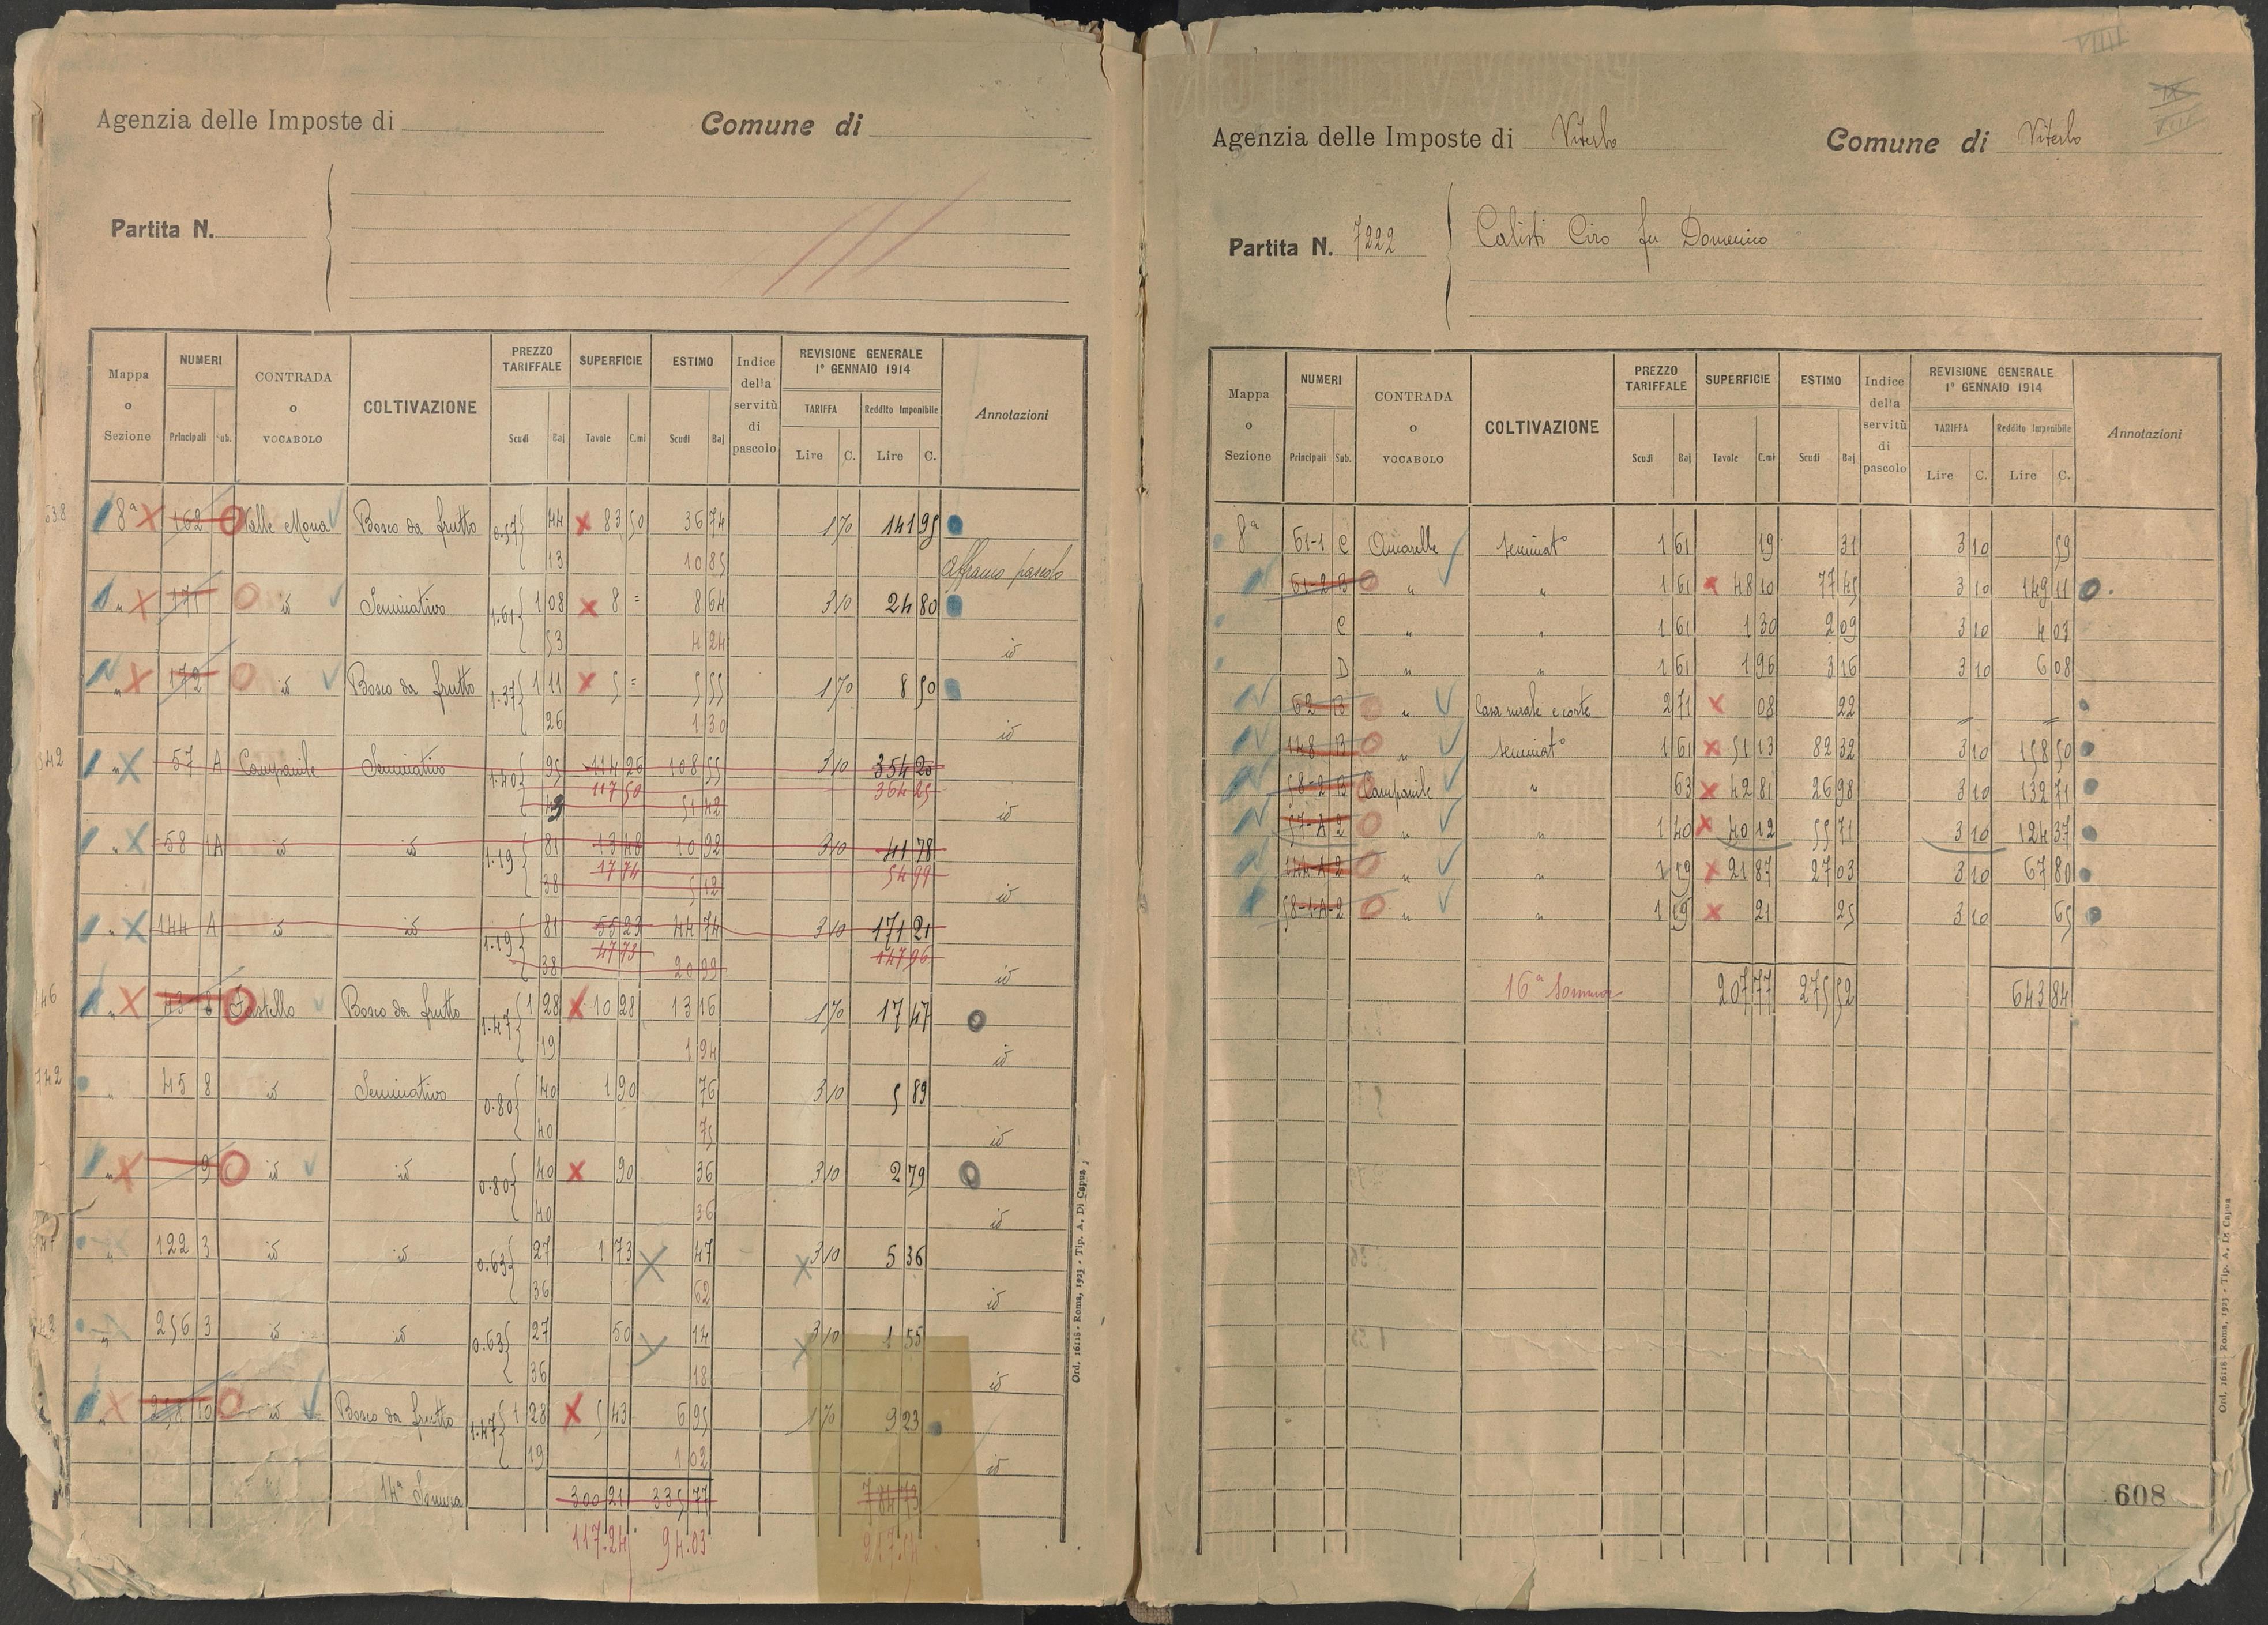 Agenzia delle Imposte di
Comune di
Partita N.
Mappa o Sezione
NUMERI
Principali Sub.
CONTRADA o VOCABOLO
COLTIVAZIONE
PREZZO TARIFFALE
Scudi Baj
SUPERFICIE
Tavole C.mi
ESTIMO
Scudi Baj
Indice della servitù di pascolo
REVISIONE GENERALE
1° GENNAIO 1914
TARIFFA
Reddito Imponibile
Lire C. Lire C.
Annotazioni
8ª 162 Valle Mona Bosco da frutto 0.57 44 83 50 36 74 1 70 141 95
13 10 85 Affranco pascolo
" 171 id Seminativo 1.61 1 08 8 = 8 64 3 10 24 80
53 4 24 id
" 172 id Bosco da frutto 1.37 1 11 5 = 5 55 1 70 8 50
26 1 30 id
" 57 A Campanile Seminativo 1.40 95 114 26 108 55 3 10 354 20
117 50 364 25
51 42 id
" 58 1A id id 1.19 81 13 48 10 92 3 10 41 78
17 74 54 99
38 5 12 id
" 144 A id id 1.19 81 55 23 44 74 3 10 171 21
47 73 147 96
38 20 99 id
" Castello Bosco da frutto 1.47 1 28 10 28 13 16 1 70 17 47
19 1 94 id
" 45 8 id Seminativo 0.80 40 1 90 76 3 10 5 89
40 75 id
" 9 id id 0.80 40 90 36 3 10 2 79
40 36 id
" 122 3 id id 0.63 27 1 73 47 3 10 5 36
36 62 id
" 256 3 id id 0.63 27 50 14 3 10 1 55
36 18 id
" 10 id Bosco da frutto 1.47 1 28 5 43 6 95 1 70 9 23
19 1 02 id
14ª Somma 300 21 335 77 784 73
117.24 94.03
Ord. 16118 - Roma, 1923 - Tip. A. Di Capua
VIIII
Agenzia delle Imposte di Viterbo
Comune di Viterbo
Partita N. 7222
Calisti Ciro fu Domenico
Mappa o Sezione
NUMERI
Principali Sub.
CONTRADA o VOCABOLO
COLTIVAZIONE
PREZZO TARIFFALE
Scudi Baj
SUPERFICIE
Tavole C.mi
ESTIMO
Scudi Baj
Indice della servitù di pascolo
REVISIONE GENERALE
1° GENNAIO 1914
TARIFFA
Reddito Imponibile
Lire C. Lire C.
Annotazioni
8ª 61-1 C seminat° 1 61 19 31 3 10 59
61-2 B " " 1 61 48 10 77 45 3 10 149 11
C " " 1 61 1 30 2 09 3 10 4 03
D " " 1 61 1 96 3 16 3 10 6 08
62 B " Casa rurale e corte 2 71 08 22
148 B " seminat° 1 61 51 13 82 32 3 10 158 50
58-2 B Campanile " 63 42 81 26 98 3 10 132 71
57-A 2 " " 1 40 40 12 55 71 3 10 124 37
144-A 2 " " 1 19 21 87 27 03 3 10 67 80
58-1-A-2 " " 1 19 21 25 3 10 65
16ª Somma 207 77 275 52 643 84
608
Ord. 16118 - Roma, 1923 - Tip. A. Di Capua